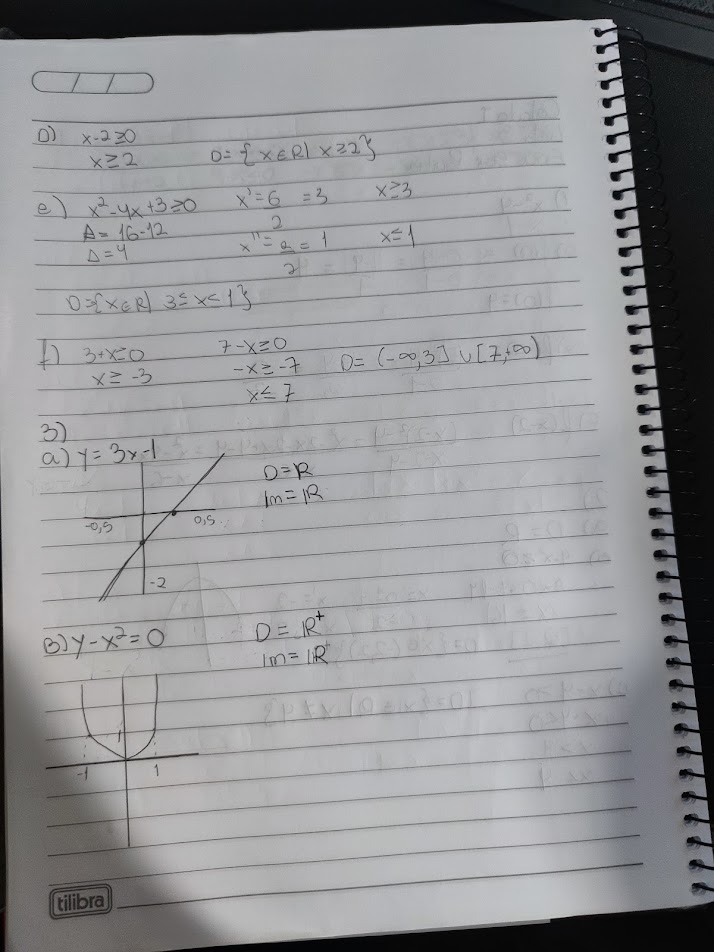 D) x-2≥0
x≥2 D={x∈R| x≥2}
e) x²-4x+3≥0 x'=6/2=3 x≥3
Δ=16-12 x''=2/2=1 x≤1
Δ=4
D={x∈R| 3≤x≤1}
f) 3+x≥0 7-x≥0 D=(-∞,3]∪[7,+∞)
x≥-3 -x≥-7
x≤7
3)
a) y=3x-1
D=R
Im=R
-0,5 0,5
-2
B) y-x²=0 D=R⁺
Im=R⁺
1
-1 1
tilibra